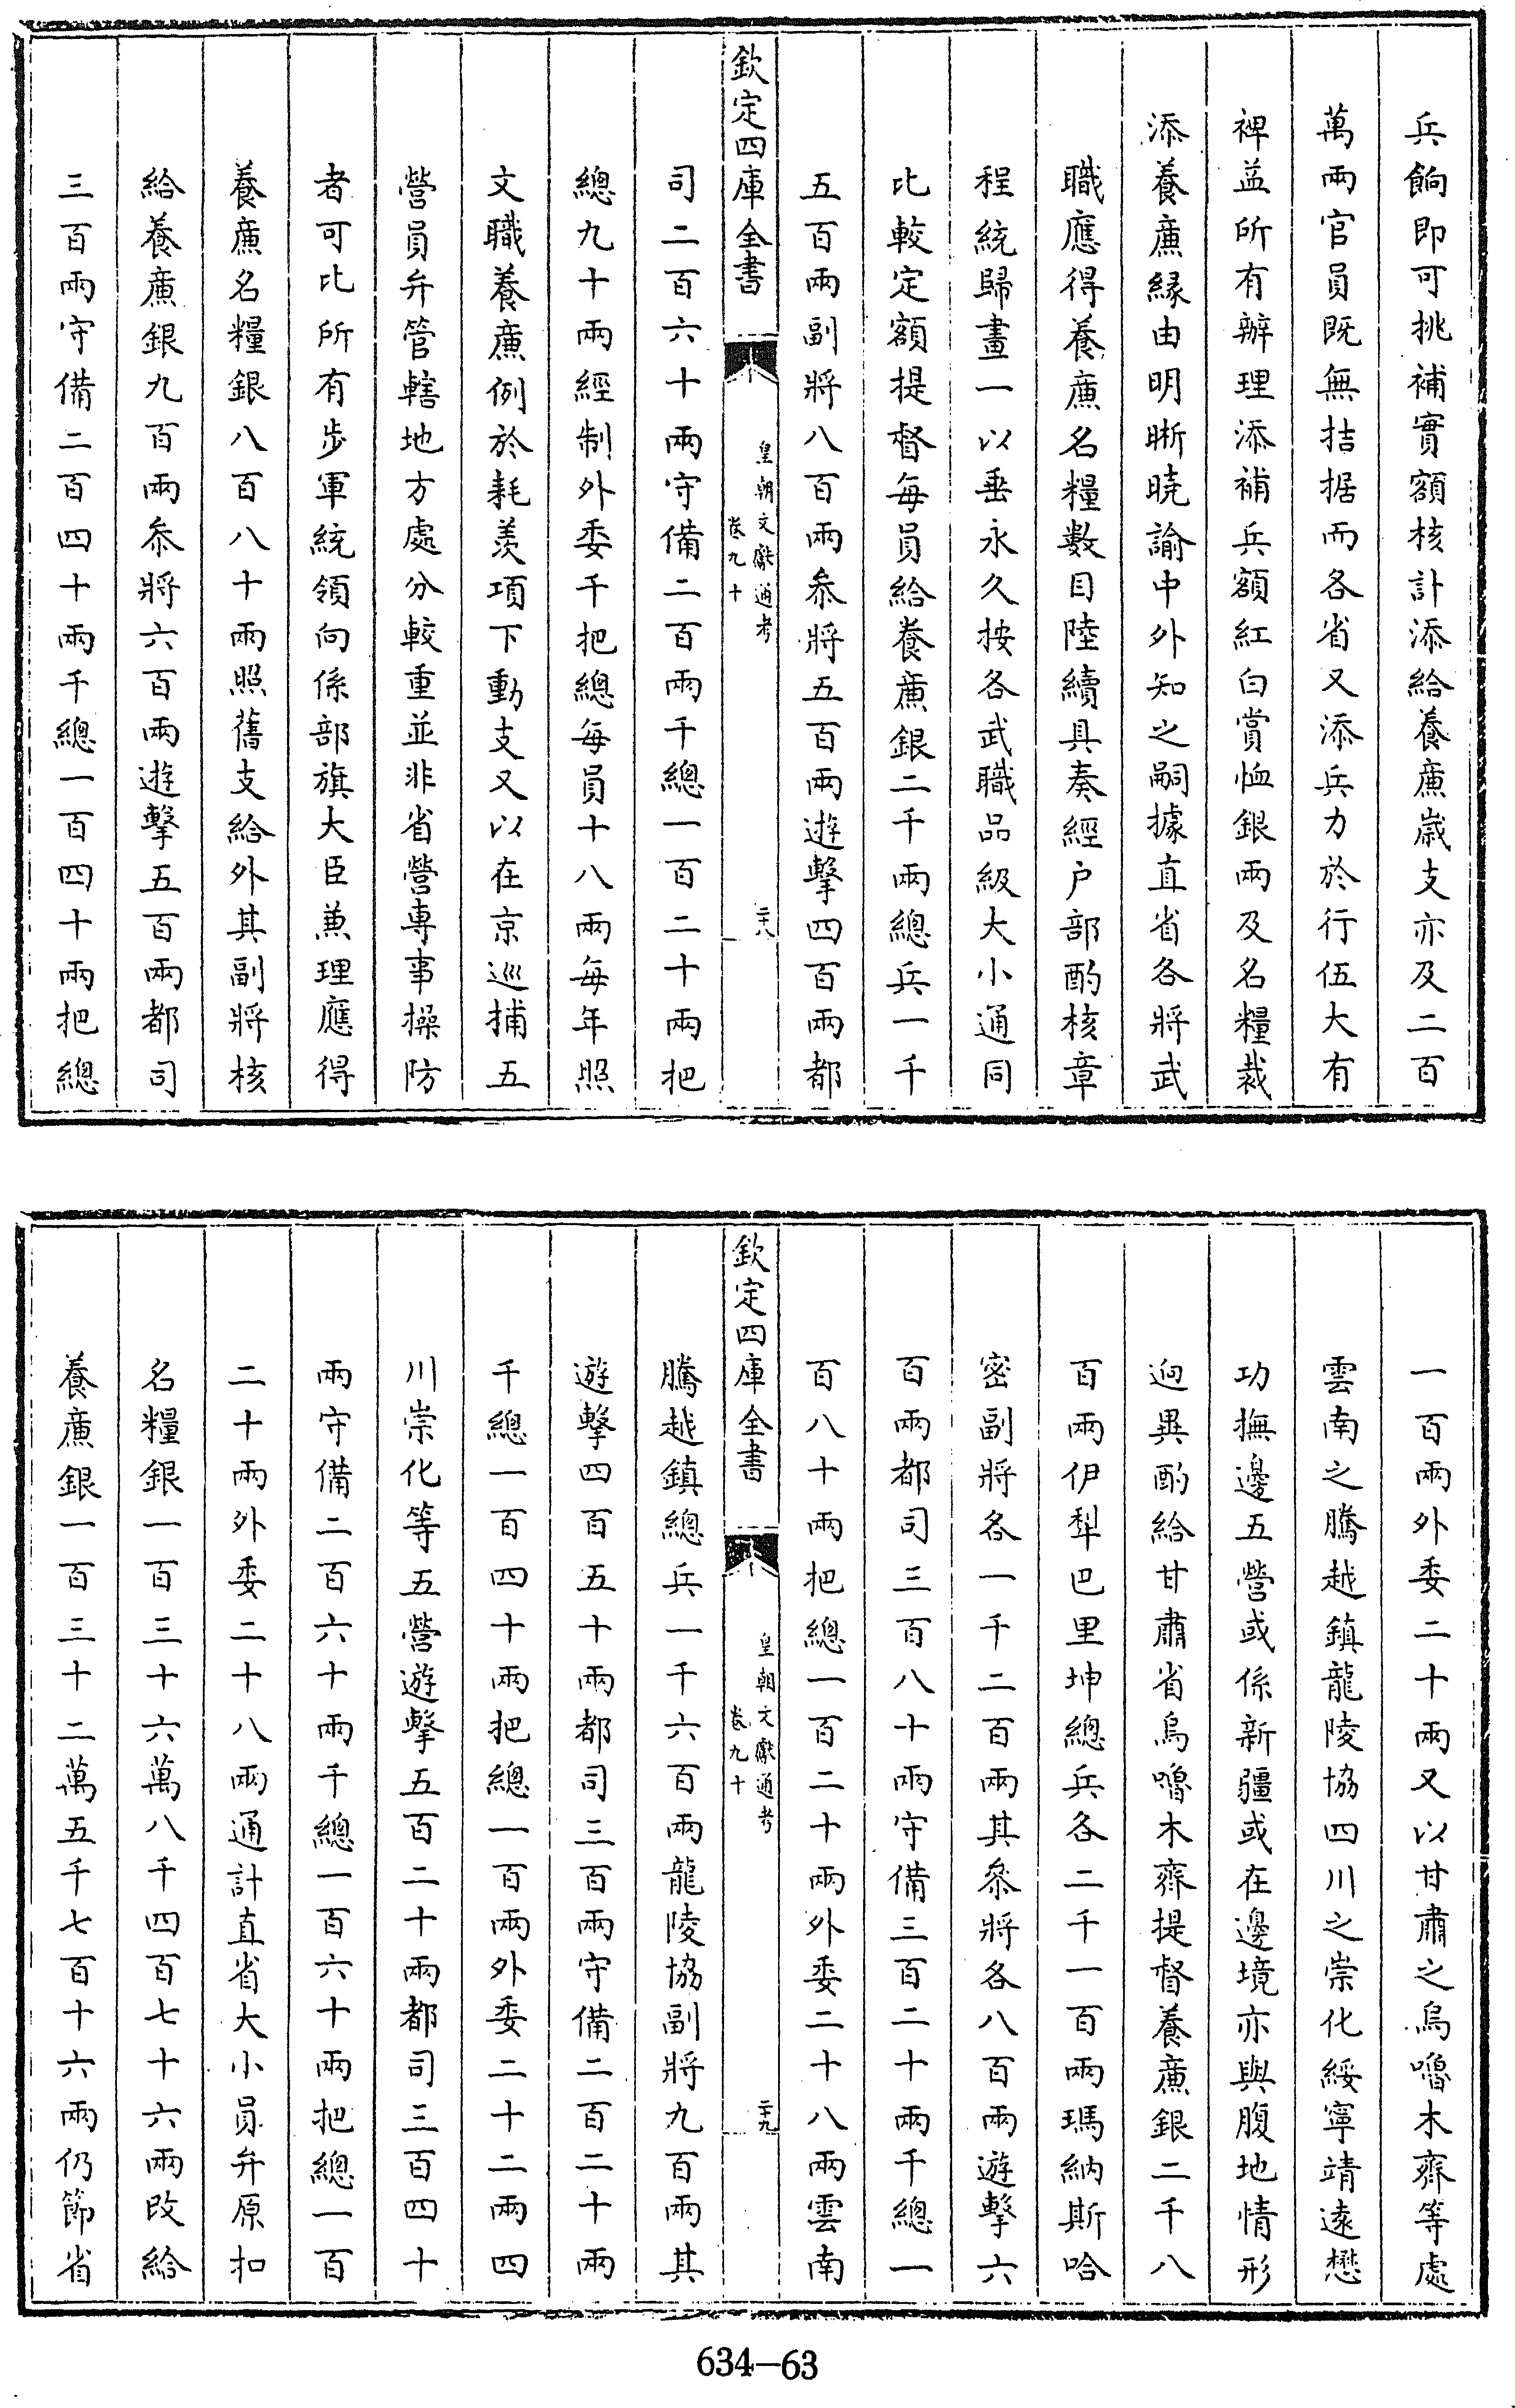 兵餉即可挑補實額核計添給養廉歲支亦及二百
萬兩官員既無拮据而各省又添兵力於行伍大有
裨益所有辦理添補兵額紅白賞恤銀兩及名糧裁
添養廉緣由明晰曉諭中外知之嗣據直省各將武
職應得養廉名糧數目陸續具奏經戶部酌核章
程統歸畫一以垂永久按各武職品級大小通同
比較定額提督每員給養廉銀二千兩總兵一千
五百兩副將八百兩叅將五百兩遊擊四百兩都
欽定四庫全書
皇朝文獻通考
卷九十
二十八
司二百六十兩守備二百兩千總一百二十兩把
總九十兩經制外委千把總每員十八兩每年照
文職養廉例於耗羡項下動支又以在京巡捕五
營員弁管轄地方處分較重並非省營專事操防
者可比所有步軍統領向係部旗大臣兼理應得
養廉名糧銀八百八十兩照舊支給外其副將核
給養廉銀九百兩叅將六百兩遊擊五百兩都司
三百兩守備二百四十兩千總一百四十兩把總
一百兩外委二十兩又以甘肅之烏嚕木齊等處
雲南之騰越鎮龍陵協四川之崇化綏寧靖遠懋
功撫邊五營或係新疆或在邊境亦與腹地情形
迥異酌給甘肅省烏嚕木齊提督養廉銀二千八
百兩伊犁巴里坤總兵各二千一百兩瑪納斯哈
密副將各一千二百兩其叅將各八百兩遊擊六
百兩都司三百八十兩守備三百二十兩千總一
百八十兩把總一百二十兩外委二十八兩雲南
欽定四庫全書
皇朝文獻通考
卷九十
二十九
騰越鎮總兵一千六百兩龍陵協副將九百兩其
遊擊四百五十兩都司三百兩守備二百二十兩
千總一百四十兩把總一百兩外委二十二兩四
川崇化等五營遊擊五百二十兩都司三百四十
兩守備二百六十兩千總一百六十兩把總一百
二十兩外委二十八兩通計直省大小員弁原扣
名糧銀一百三十六萬八千四百七十六兩改給
養廉銀一百三十二萬五千七百十六兩仍節省
634-63